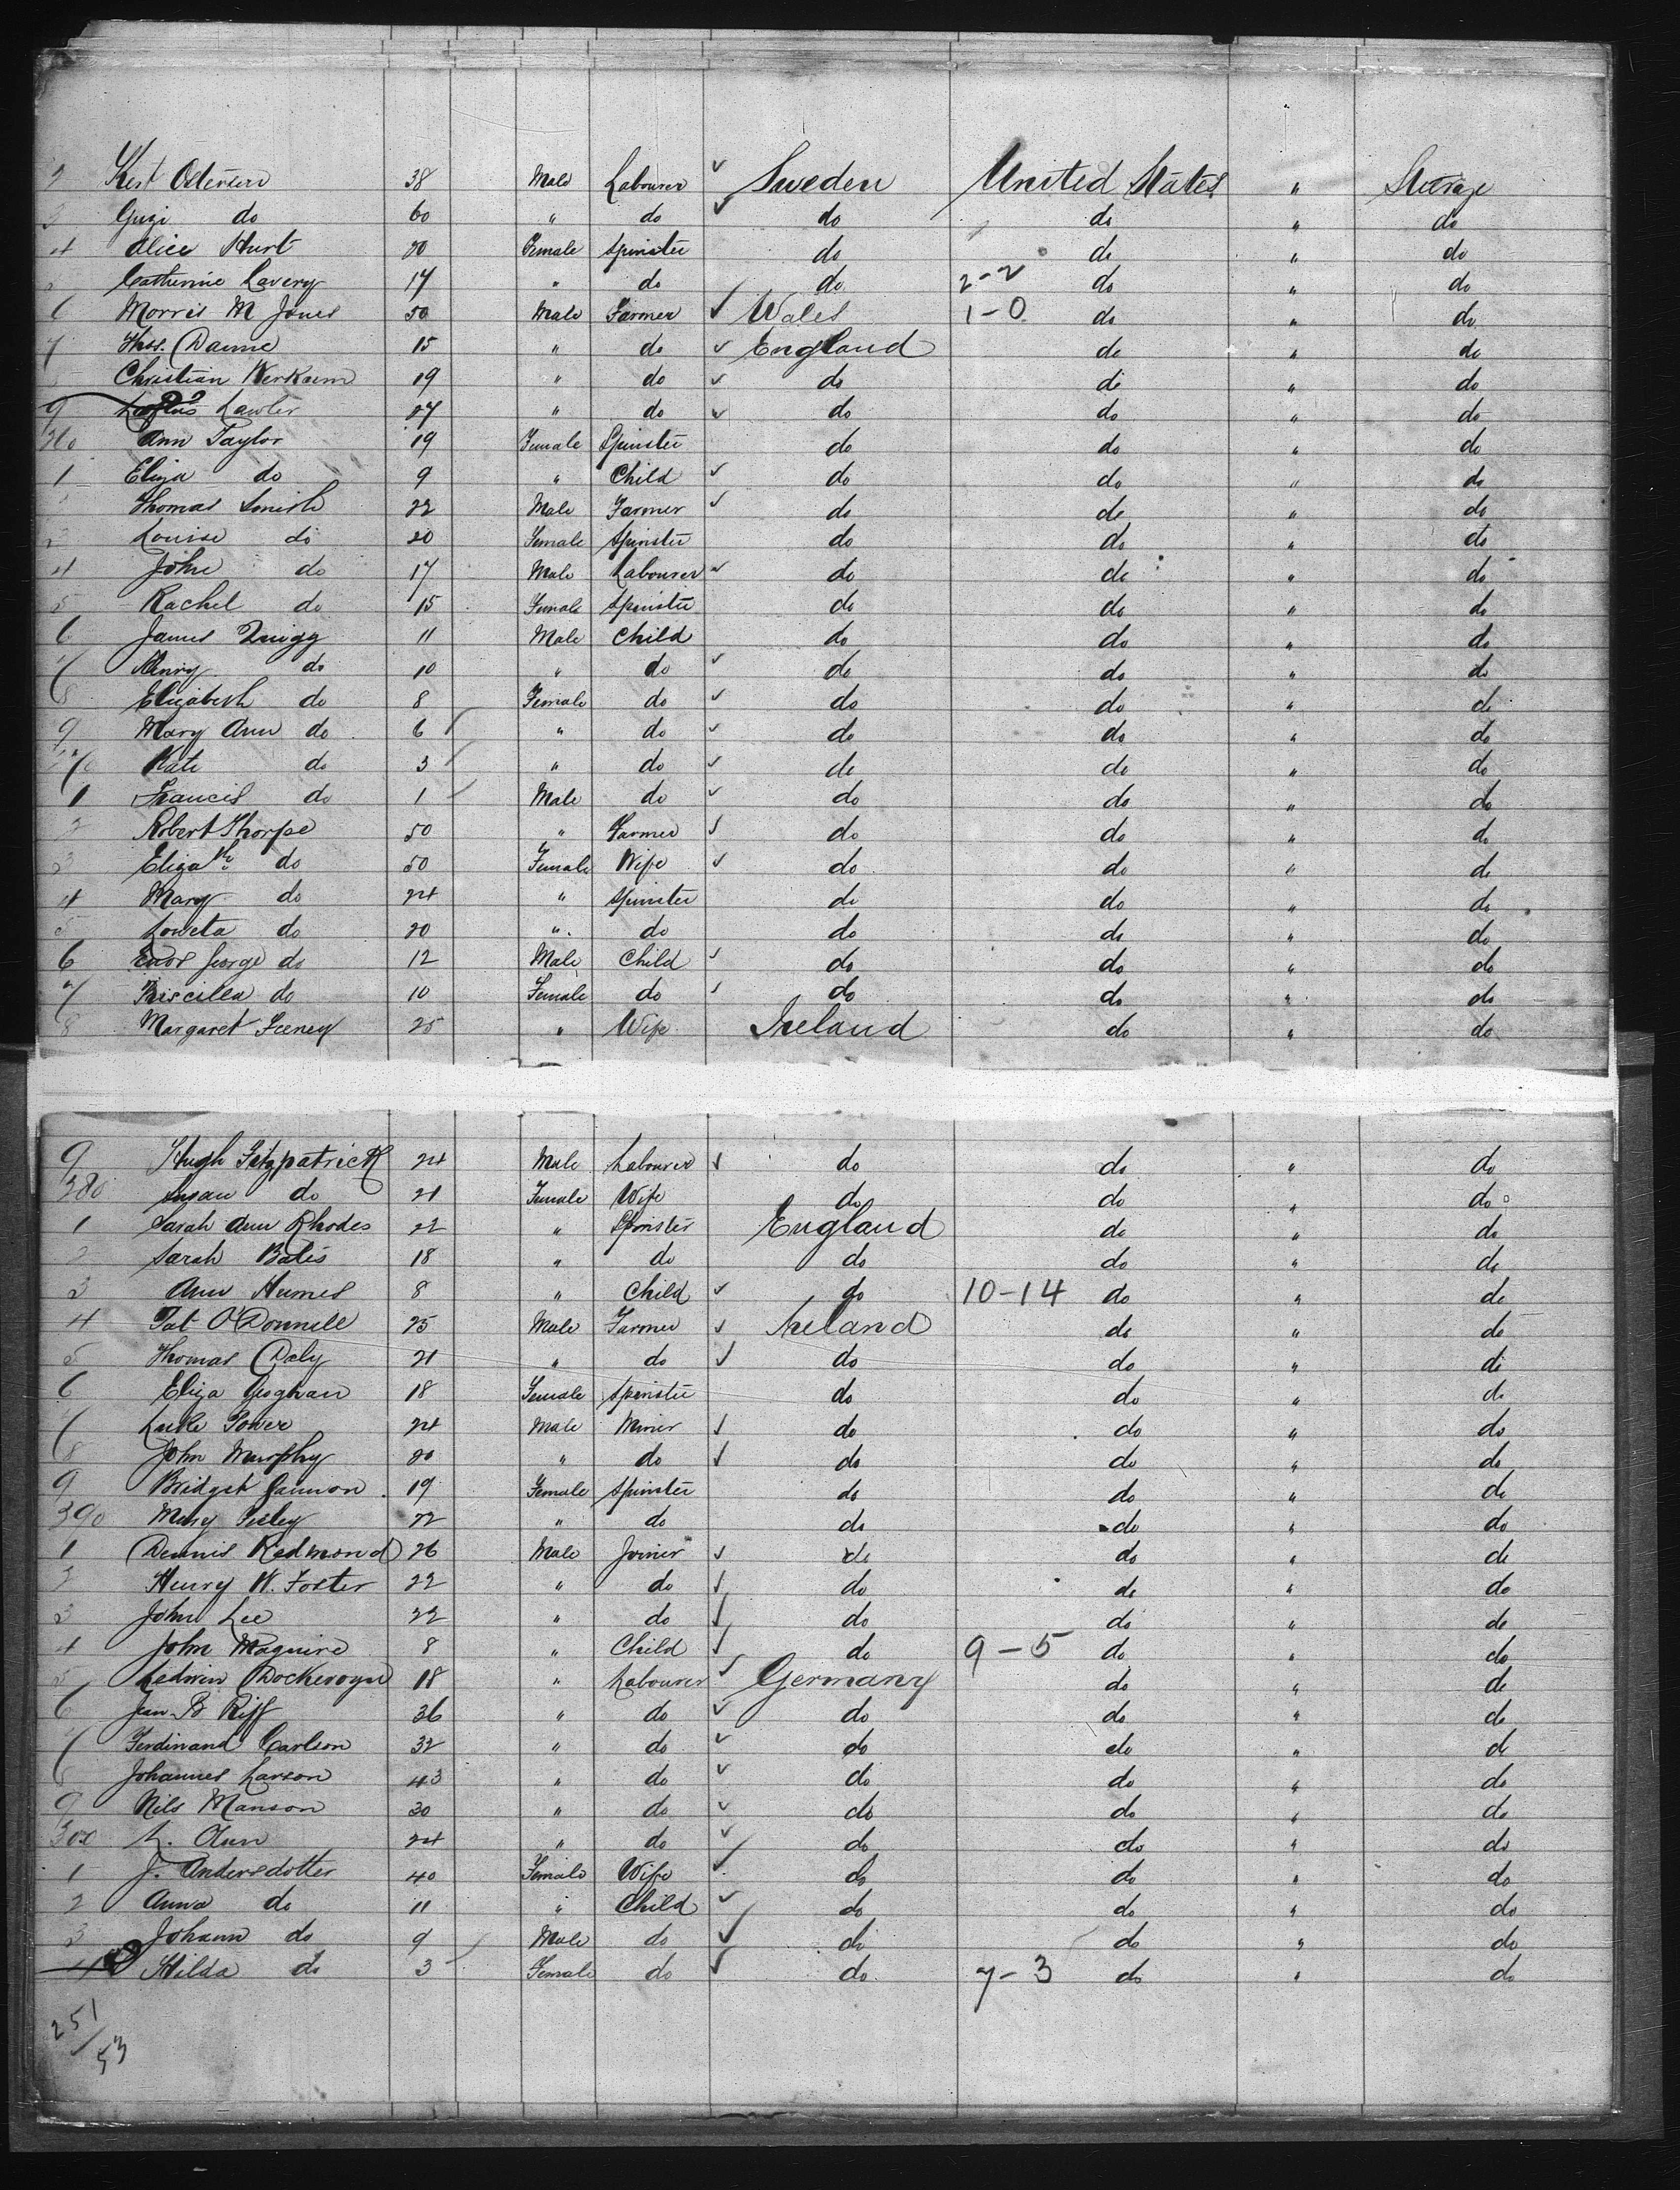 2 Kest Odensen 38 Male Labourer ✓ Sweden United States " Steerage
3 Guzi do 60 " do ✓ do do " do
4 Alice Hurt 20 Female Spinster do do " do
5 Catherine Lavery 17 " do do 2-2 do " do
6 Morris M Jones 50 Male Farmer ✓ Wales 1-0 do " do
7 Thos. Daime 15 " do ✓ England do " do
Christian Werkaim 19 " do ✓ do do " do
9 Lawler 27 " do ✓ do do " do
Ann Taylor 19 Female Spinster do do " do
1 Eliza do 9 " Child ✓ do do " do
Thomas Smith 22 Male Farmer ✓ do do " do
3 Louise do 20 Female Spinster do do " do
4 John do 17 Male Labourer ✓ do do " do
5 Rachel do 15 Female Spinster do do " do
6 James Quigg 11 Male Child do do " do
7 Henry do 10 " do ✓ do do " do
8 Elizabeth do 8 Female do ✓ do do " do
9 Mary Ann do 6 " do ✓ do do " do
Kate do 3 " do ✓ do do " do
1 Francis do 1 Male do ✓ do do " do
2 Robert Thorpe 50 " Farmer ✓ do do " do
3 Elizath do 50 Female Wife ✓ do do " do
4 Mary do 24 " Spinster do do " do
5 Loweta do 20 " do do do " do
6 Enos George do 12 Male Child ✓ do do " do
7 Priscilla do 10 Female do ✓ do do " do
8 Margaret Feeney 25 " Wife Ireland do " do
9 Hugh Fitzpatrick 24 Male Labourer ✓ do do " do
380 Susan do 21 Female Wife do do " do
1 Sarah Ann Rhodes 22 " Spinster England do " do
2 Sarah Bates 18 " do do do " do
3 Ann Humes 8 " Child ✓ do 10-14 do " do
4 Pat O'Donnell 25 Male Farmer ✓ Ireland do " do
5 Thomas Daly 21 " do ✓ do do " do
6 Eliza Geoghan 18 Female Spinster do do " do
7 Luke Power 24 Male Miner ✓ do do " do
8 John Murphy 20 " do ✓ do do " do
9 Bridget Gannon 19 Female Spinster do do " do
390 Mary 22 " do do do " do
1 Dennis Redmond 26 Male Joiner ✓ do do " do
2 Henry W. Foster 22 " do ✓ do do " do
3 John Lee 22 " do ✓ do do " do
4 John Maguire 8 " Child ✓ do 9-5 do " do
5 Ledwin 18 " Labourer ✓ Germany do " do
6 Jean B Riff 36 " do ✓ do do " do
7 Ferdinand Carlson 32 " do ✓ do do " do
8 Johannes Larson 43 " do ✓ do do " do
9 Nils Manson 30 " do ✓ do do " do
300 L. Olsen 24 " do ✓ do do " do
1 J. Andersdotter 40 Female Wife ✓ do do " do
2 Anna do 11 " Child ✓ do do " do
3 Johann do 9 Male do ✓ do do " do
4 Hilda do 3 Female do ✓ do 7-3 do " do
251/53